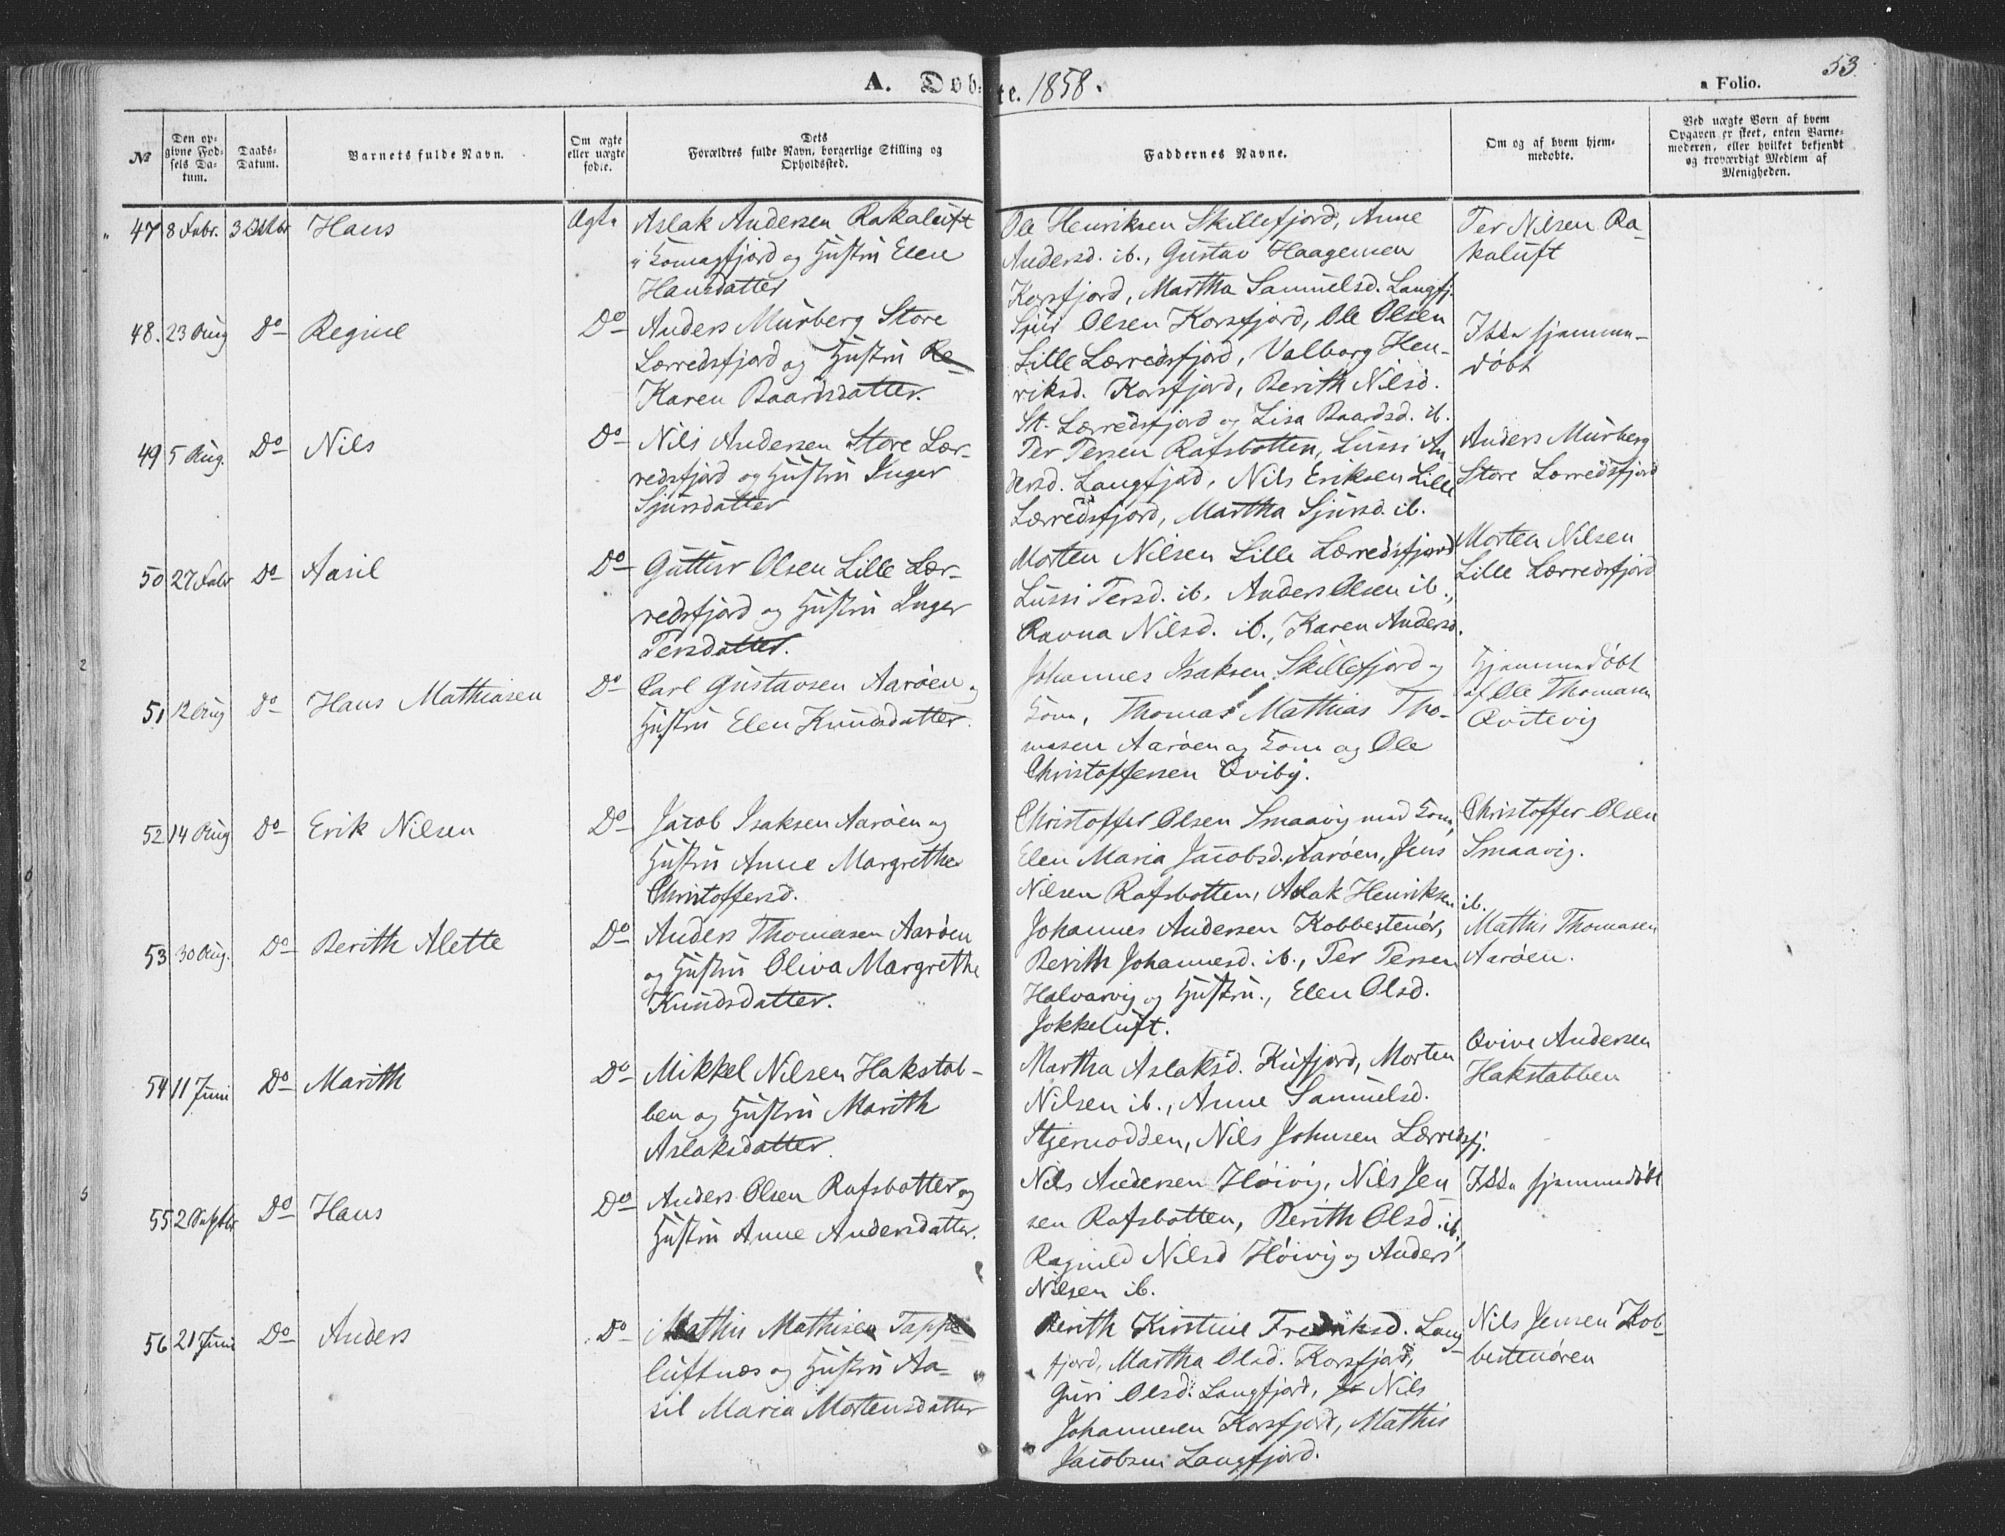 A. Døbte. 1858.
a Folio. 53
No
Den opgivne Fødsels Datum.
Daabs-Datum.
Barnets fulde Navn.
Om ægte eller uægte fød.e.
Dets Forældres fulde Navn, borgerlige Stilling og Opholdssted.
Faddernes Navne.
Om og af hvem hjemmedøbte.
Ved uægte Børn af hvem Opgaven er skeet, enten Barnemoderen, eller hvilket bekjendt og troværdigt Medlem af Menigheden.
47 8 Febr. 3 Oktbr Hans Ægte
Aslak Andersen Rakaluft
i Komagfjord og Hustru Elen
Hansdatter
Ole Henriksen Skillefjord, Anne
Andersd. ib., Gustav Haagensen
Korsfjord, Martha Samuelsd. Langfj.
Per Nilsen Ra-
kaluft
48. 23 Aug Do Regine Do
Anders Murberg Store
Lærredsfjord og Hustru Re-
Karen Baardsdatter.
Sjul Olsen Korsfjord, Ole Olsen
Lille Lærredsfjord, Valborg Hen-
riksd. Korsfjord, Berith Nilsd.
St. Lærredsfjord og Lisa Baardsd. ib.
Ikke hjemme-
døbt
49 5 Aug. Do Nils Do
Nils Andersen Store Lær-
redsfjord og Hustru Inger
Sjursdatter
Per Persen Rafsbotten, Lussi An
dersd. Langfjord, Nils Eriksen Lille
Lærredsfjord, Martha Sjursd. ib.
Anders Murberg
Store Lærredsfjord
50 27 Febr Do Aasil Do
Guttor Olsen Lille Lær-
redsfjord og Hustru Inger
Persdatter.
Morten Nilsen Lille Lærredsfjord
Lussi Persd. ib. Anders Olsen ib.,
Ravna Nilsd. ib., Karen Andersd.
Morten Nilsen
Lille Lærredsfjord
51 12 Aug Do Hans Mathiasen Do
Carl Gustavsen Aarøen og
Hustru Elen Knudsdatter.
Johannes Isaksen Skillefjord og
Kone, Thomas Mathias Tho-
masen Aarøen og Kone og Ole
Christoffersen Qviby.
Hjemmedøbt
af Ole Thomasen
Qvitevig
52 14 Aug Do Erik Nilsen Do
Jacob Isaksen Aarøen og
Hustru Anne Margrethe
Christoffersd.
Christoffer Olsen Smaavig med Kone,
Elen Maria Jacobsd. Aarøen, Jens
Nilsen Rafsbotten, Aslak Henriksen ib.
Christoffer Olsen
Smaavig.
53 30 Aug. Do Berith Alette Do
Anders Thomasen Aarøen
og Hustru Oliva Margrethe
Knudsdatter.
Johannes Andersen Kobbestenør,
Berith Johannesd. ib., Per Persen
Halvarvig og Hustru., Elen Olsd.
Jokkeluft.
Mathis Thomasen
Aarøen.
54 11 Juni Do Marith Do
Mikkel Nilsen Hakstab-
ben og Hustru Marith
Aslaksdatter.
Martha Aslaksd. Kufjord, Morten
Nilsen ib., Anne Samuelsd.
Stjernodden, Nils Johnsen Lærredsfj.
Qvive Andersen
Hakstabben
55 2 Septbr Do Hans Do
Anders Olsen Rafsbotten og
Hustru Anne Andersdatter.
Nils Andersen Høivig, Nils Jen
sen Rafsbotten, Berith Olsd. ib.,
Ragnild Nilsd Høivig og Anders
Nilsen ib.
Ikke hjemmedøbt
56 21 Juni Do Anders Do
Mathis Mathisen Tappe
luftnæs og Hustru Aa-
sil Maria Mortensdatter
Berith Kirstine Fredriksd. Lang
fjord, Martha Olsd. Korsfjord,
Guri Olsd. Langfjord, Nils
Johannesen Korsfjord, Mathis
Jacobsen Langfjord.
Nils Jensen Kob-
bestenøren